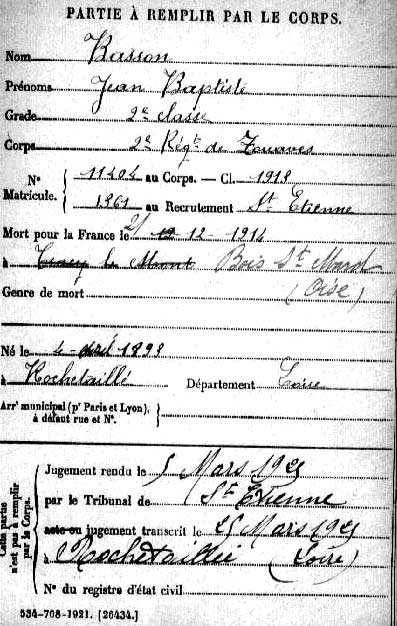 PARTIE À REMPLIR PAR LE CORPS.
Nom Basson
Prénoms Jean Baptiste
Grade 2e classe
Corps 2e Régt de Zouaves
No Matricule. { 11404 au Corps. — Cl. 1918
1861 au Recrutement St Etienne
Mort pour la France le 21 12 - 1914
à Tracy le Mont Bois St Mard
(Oise)
Genre de mort
Né le 4 - avril 1898
à Rochetaillée Département Loire
Arrt municipal (pr Paris et Lyon), à défaut rue et No. {
Cette partie n'est pas à remplir par le Corps.
Jugement rendu le 5 Mars 1921
par le Tribunal de St Etienne
acte ou jugement transcrit le 25 Mars 1921
à Rochetaillée (Loire)
No du registre d'état civil
534-708-1921. [26434.]